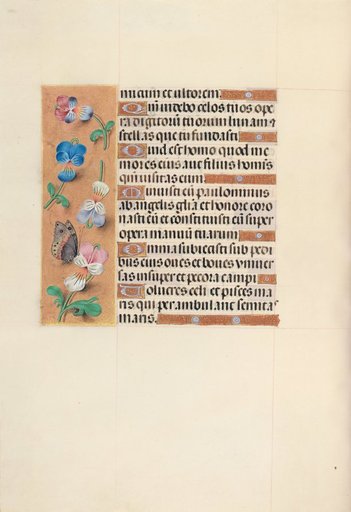 micum et ultorem.
Qm̄ uidebo celos tuos ope
ra digitorū tuorum lunam et
stellas que tu fundasti
Quid est homo quod me
mor es eius aut filius homīs
qm̄ uisitas eum.
Minuisti eū paulominus
ab angelis gl̄ia et honore coro
nasti eū et constituisti eū super
opera manuū tuarum
Omnia subiecisti sub pedi
bus eius oues et boues vniuer
sas insuper et pecora campi
Volucres celi et pisces ma
ris qui perambulant semitas
maris.